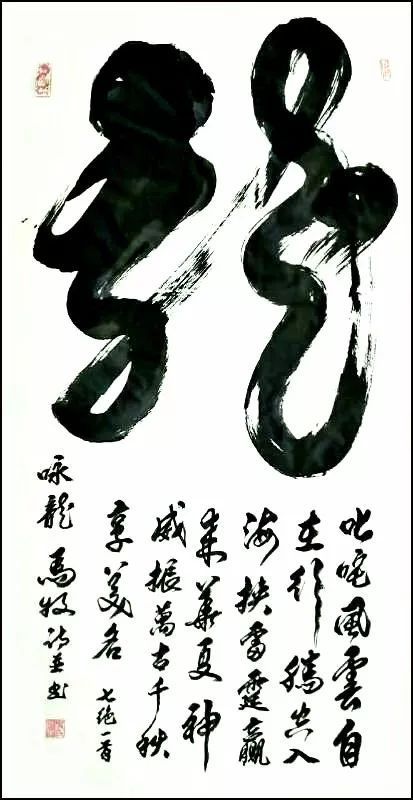 龍
叱咤風雲自
在行騰空入
海挾雷霆贏
來華夏神
威振萬古千秋
享美名 七絕一首
咏龍 馬牧詩並書